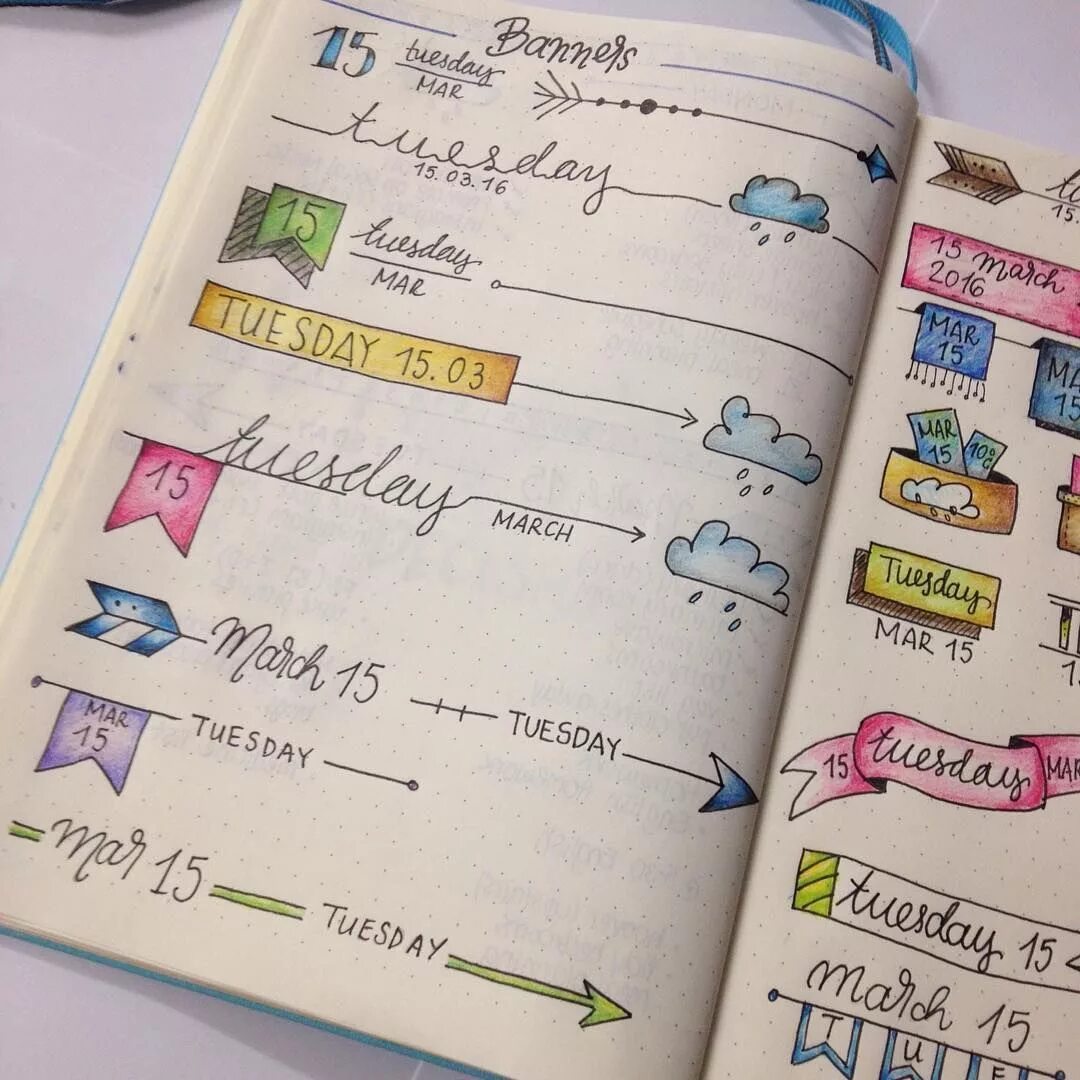 Banners
15 tuesday
MAR
tuesday
15.03.16
15 tuesday
MAR
TUESDAY 15.03
15 tuesday
MARCH
March 15 TUESDAY
MAR
15
TUESDAY
Mar 15 TUESDAY
15.
15 March
2016
MAR
15
MA
15
MAR
15
10°C
Tuesday
MAR 15
15 tuesday MAR
tuesday 15
march 15
T U E